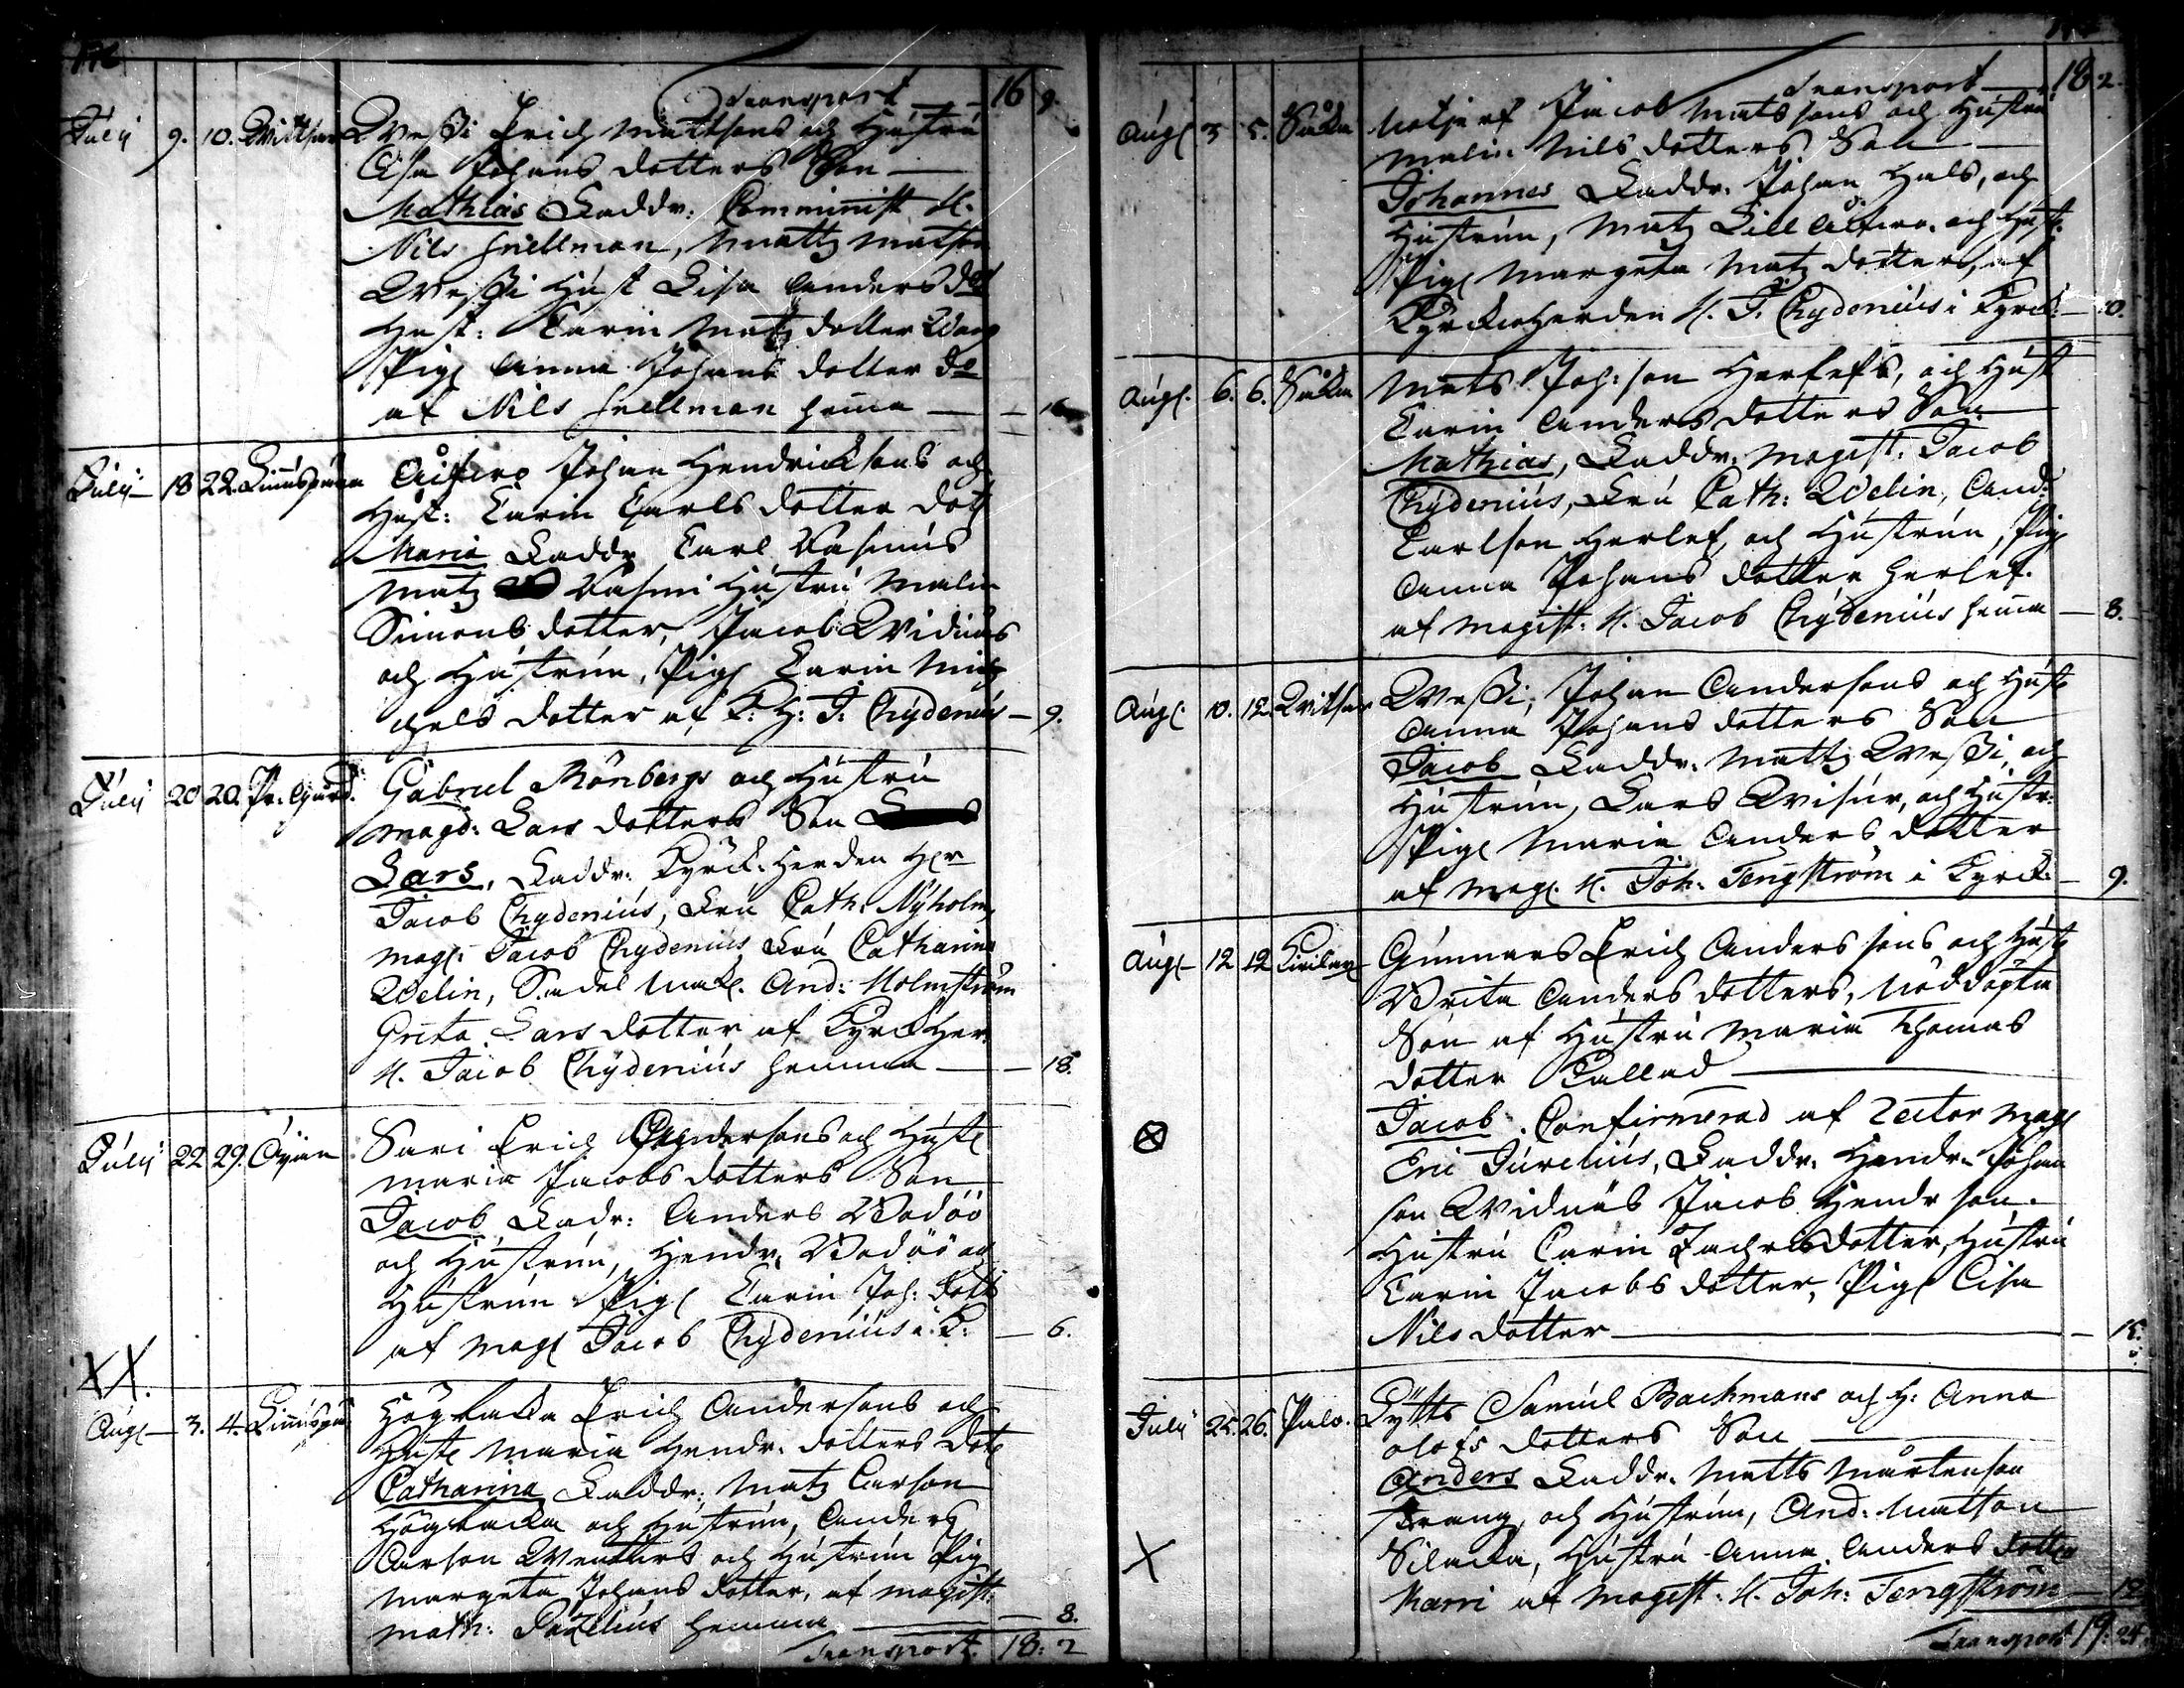 Transport 16 9.
July 9. 10. Qvessi Erich Mattsons och Hustru
Lisa Johans dotters Son
Mathias Faddr: Comminist: H.
Nils Snellman, Mattz Matson
Qvessi Hust Lisa Anders do
Hust: Carin Matz dotter
Pig Anna Johans dotter do
af Nils Snellman hema
July 18 22. Johan Hendricksons och
Hust: Carin Carls dotter dott
Maria Faddr Carl Rasmus
Matz Rasmi Hustru Malin
Simons dotter, Jacob Widnäs
och Hustrun, Pig Carin Mich
chels dotter af K: H: J: Chydenius — 9.
July 20 20. Pr: Gård. Gabriel Rönbergs och Hustru
Magd: Lars dotters Son
Lars, Faddr: Kyrck:herden Her
Jacob Chydenius, Fru Cath: Nyholm,
Mag: Jacob Chydenius Fru Catharina
Welin, Sadel Mak. And: Holmström
Greta Lars dotter af Kyrckher:
H. Jacob Chydenius hemma — 18.
July 22 29. Öijan Sari Erich Andersons och Hust
Maria Jacobs dotters Son
Jacob Fadr: Anders
och Hustrun, Hendr: och
Hustrun Pig Carin Joh: dott
af Mag Jacob Chydenius i K: — 6.
XX.
Aug 3. 4. Högbacka Erich Andersons och
Hust Maria Hendr: dotters dott
Catharina Faddr: Matz Carson
Högbacka och Hustrun, Anders
Carson och Hustrun Pig
Margeta Johans dotter, af Magist:
Math: hemma — 8.
Transport. 18: 2
Transport 18 2.
Aug 3 5. Såka Jacob Matssons och Hustru
Malin Nils dotters Son
Johannes Faddr: Johan Hals, och
Hustrun, Matz Lill och Hust:
Pig Margeta Matz dotter, af
Kyrckioherden H. J. Chydenius i Kyrck:
Aug. 6. 6. Såka Mats Joh:son Herlefs, och Hust
Carin Anders dotters Son
Mathias, Faddr: Magist: Jacob
Chydenius, Fru Cath: Welin, And:
Carlson Herlef, och Hustrun, Pig
Anna Johans dotter Herlef.
af Magist: H. Jacob Chydenius hema — 8.
Aug. 10. 12. Qvessi, Johan Andersons och Hust
Anna Johans dotters Son
Jacob Faddr: Mattz Qvessi, och
Hustrun, Lars och Hustr:
Pig Maria Anders dotter
af Mag: H. Joh: Tengström i Kyrck: — 9.
Aug 12 12 Gunnars Erich Anders sons och Hust
Brita Anders dotters, Nöddöpta
Son af Hustru Maria Thomas
dotter Kallad
Jacob. Confirmerad af Rector Mag
Eric Faddr: Hendr: Johan
son Widnäs Jacob Hendr son.
Hustru Carin Zachrisdotter, Hustru
Carin Jacobs dotter, Pig Lisa
Nils dotter — 15.
July 25. 26. Palo. Samuel Backmans och H: Anna
Olofs dotters Son
Anders Faddr: Matts Mårtenson
Strang, och Hustrun, And: Matson
Silacka, Hustru Anna Anders dotter
af Magist: H. Joh: Tengström — 12
Transport 19: 24.